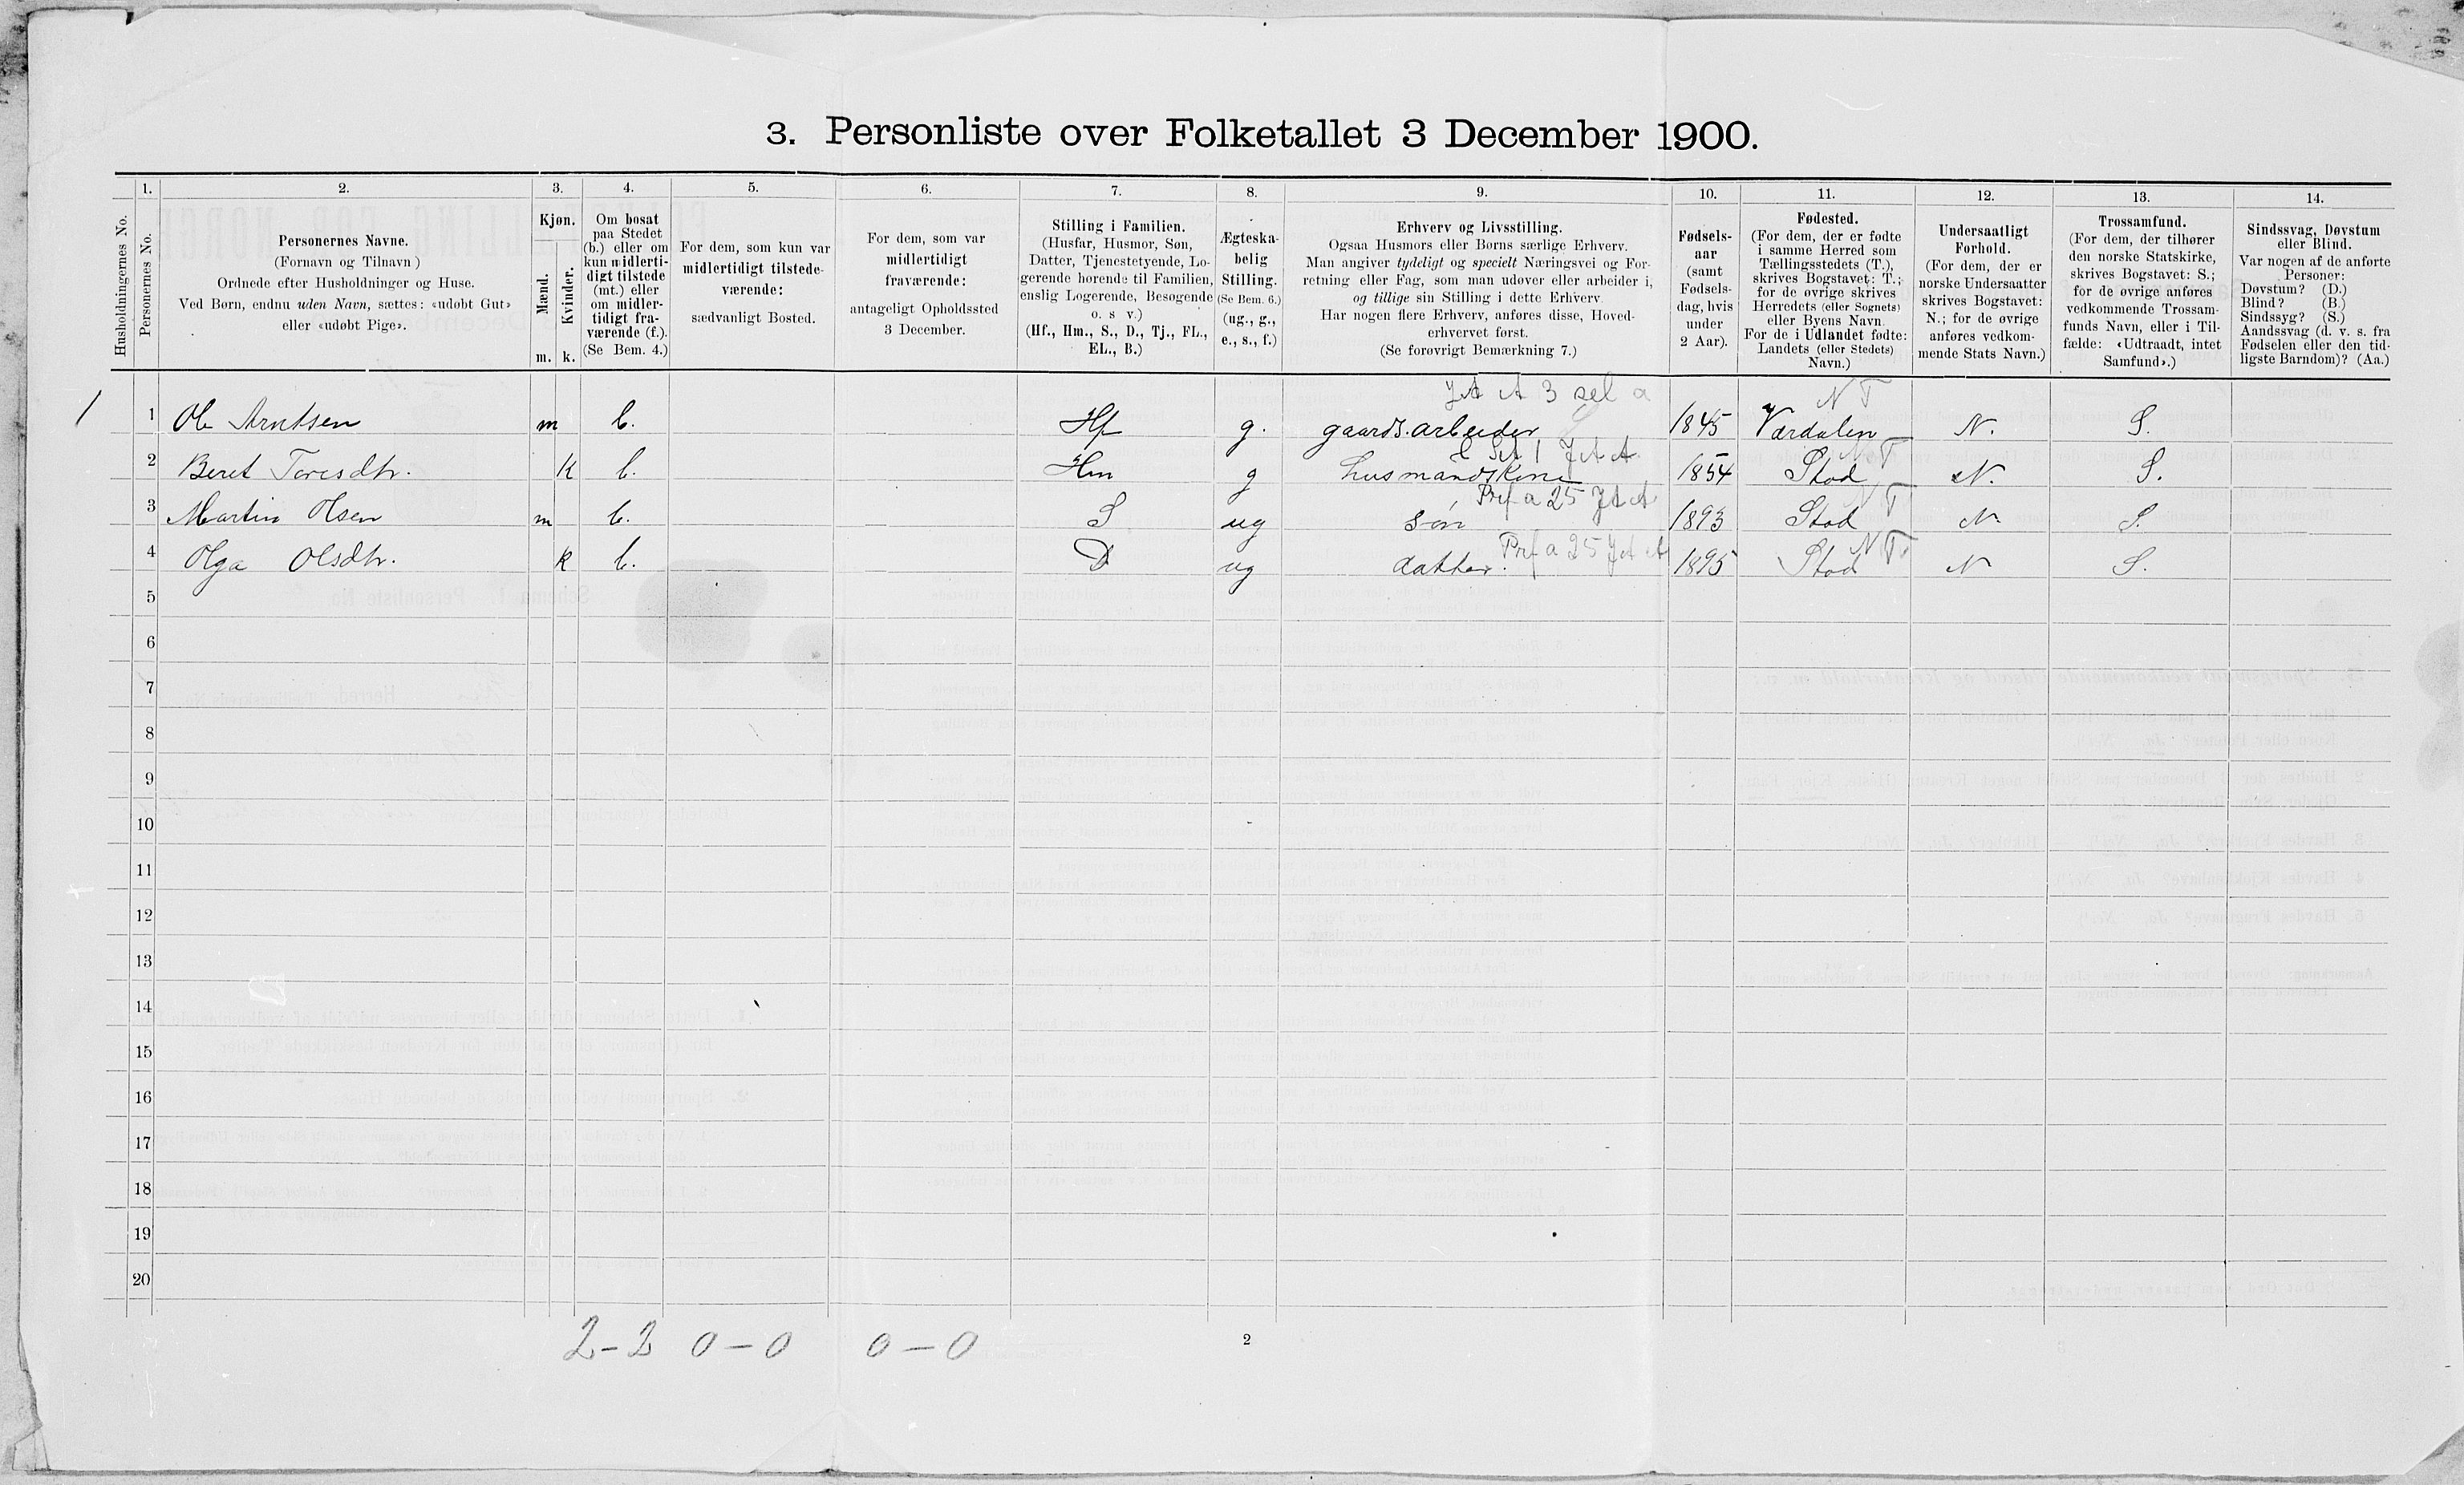 3. Personliste over Folketallet 3 December 1900.
Husholdningernes No.
1.
Personernes No.
2.
Personernes Navne.
(Fornavn og Tilnavn)
Ordnede efter Husholdninger og Huse.
Ved Børn, endnu uden Navn, sættes: «udøbt Gut»
eller «udøbt Pige».
3.
Kjøn.
Mænd.
Kvinder.
m. k.
4.
Om bosat
paa Stedet
(b.) eller om
kun midlerti-
digt tilstede
(mt.) eller
om midler-
tidigt fra-
værende (f.).
(Se Bem. 4.)
5.
For dem, som kun var
midlertidigt tilstede-
værende:
sædvanligt Bosted.
6.
For dem, som var
midlertidigt
fraværende:
antageligt Opholdssted
3 December.
7.
Stilling i Familien.
(Husfar, Husmor, Søn,
Datter, Tjenestetyende, Lo-
gerende hørende til Familien,
enslig Logerende, Besøgende
o. s v.)
(Hf., Hm., S., D., Tj., FL.,
EL., B.)
8.
Ægteska-
belig
Stilling.
(Se Bem. 6.)
(ug., g.,
e., s., f.)
9.
Erhverv og Livsstilling.
Ogsaa Husmors eller Børns særlige Erhverv.
Man angiver tydeligt og specielt Næringsvei og For-
retning eller Fag, som man udøver eller arbeider i,
og tillige sin Stilling i dette Erhverv.
Har nogen flere Erhverv, anføres disse, Hoved-
erhvervet først.
(Se forøvrigt Bemærkning 7.)
10.
Fødsels-
aar
(samt
Fødsels-
dag, hvis
under
2 Aar).
11.
Fødested.
(For dem, der er fødte
i samme Herred som
Tællingsstedets (T.),
skrives Bogstavet: T.;
for de øvrige skrives
Herredets (eller Sognets)
eller Byens Navn.
For de i Udlandet fødte:
Landets (eller Stedets)
Navn.)
12.
Undersaatligt
Forhold.
(For dem, der er
norske Undersaatter
skrives Bogstavet:
N.; for de øvrige
anføres vedkom-
mende Stats Navn.)
13.
Trossamfund.
(For dem, der tilhører
den norske Statskirke,
skrives Bogstavet: S.;
for de øvrige anføres
vedkommende Trossam-
funds Navn, eller i Til-
fælde: «Udtraadt, intet
Samfund».)
14.
Sindssvag, Døvstum
eller Blind.
Var nogen af de anførte
Personer:
Døvstum? (D.)
Blind? (B.)
Sindssyg? (S.)
Aandssvag (d. v. s. fra
Fødselen eller den tid-
ligste Barndom)? (Aa.)
N T
1 1 Ole Arntsen m b. Hf g. gaards.arbeider 1845 Værdalen N. S.
N T
2 Beret Toresdtr. k b. Hm g husmandskone 1854 Stod N. S.
N T
3 Martin Olsen m b. S ug søn 1893 Stod N. S.
N T
4 Olga Olsdtr. k b. D ug datter. 1895 Stod N S.
5
6
7
8
9
10
11
12
13
14
15
16
17
18
19
20
2-2 0-0 0-0
2